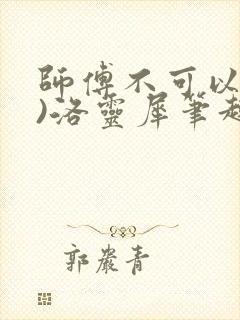 師傅不可以
)洛靈犀筆趣
郭嚴青